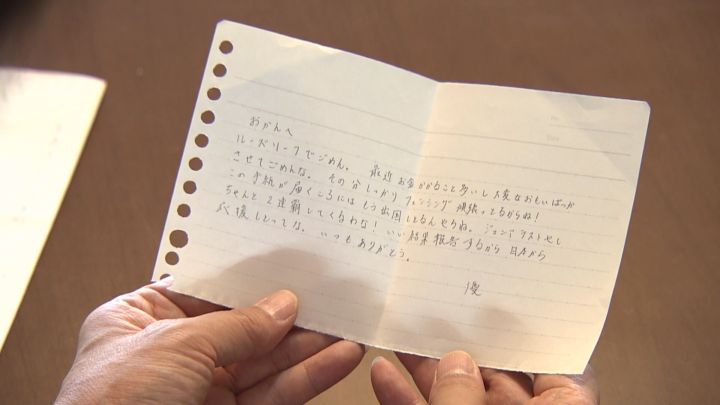 おかんへ
ルーズリーフでごめん。 最近お金かかること多いし大変なおもいばっか
させてごめんな。その分しっかりフェンシング頑張ってるからね!
この手紙が届くころにはもう出国しとるんやろね。ジュニアラストやし
ちゃんと2連覇してくるわな!いい結果報告するから日本から
応援しとってな。いつもありがとう。
優